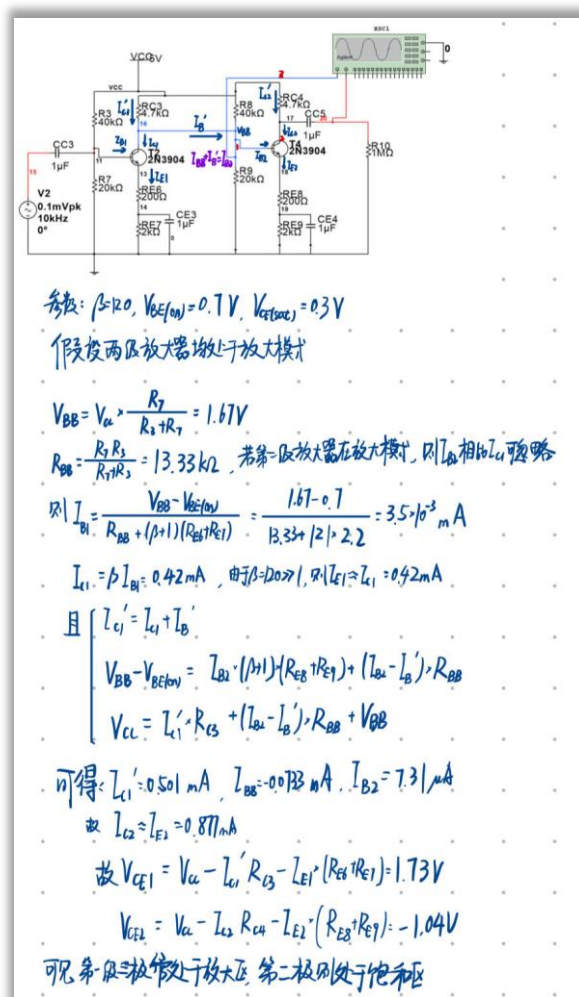 XSC1
Agilent
VCC 5V
vcc
R3
40kΩ
RC3
4.7kΩ
R8
40kΩ
RC4
4.7kΩ
CC3
1μF
2N3904
CC5
1μF
T4
2N3904
R10
1MΩ
R7
20kΩ
RE6
200Ω
RE7
2kΩ
CE3
1μF
R9
20kΩ
RE8
200Ω
RE9
2kΩ
CE4
1μF
V2
0.1mVpk
10kHz
0°
参数: β=120, V_BE(on)=0.7V, V_CE(sat)=0.3V
假设两级放大器均处于放大模式
V_BB = V_CC × R_7 / (R_3+R_7) = 1.67V
R_BB = R_7 R_3 / (R_7+R_3) = 13.33kΩ, 若第一级放大器在放大模式, 则I_B2相比I_C1可忽略
则 I_B1 = (V_BB - V_BE(on)) / (R_BB + (β+1)(R_E6+R_E7)) = (1.67-0.7) / (13.33+121×2.2) = 3.5×10^-3 mA
I_C1 = βI_B1 = 0.42mA, 由于β=120≫1, 则I_E1≈I_C1=0.42mA
且 { I_C1' = I_C1 + I_B'
V_BB - V_BE(on) = I_B2·(β+1)·(R_E8+R_E9) + (I_B2-I_B')·R_BB
V_CC = I_C1'·R_C3 + (I_B2-I_B')·R_BB + V_BB
可得: I_C1'=0.501mA, I_BB=-0.0733mA, I_B2=7.31μA
故 I_C2≈I_E2=0.877mA
故 V_CE1 = V_CC - I_C1' R_C3 - I_E1·(R_E6+R_E7) = 1.73V
V_CE2 = V_CC - I_C2 R_C4 - I_E2·(R_E8+R_E9) = -1.04V
可见第一级三极管处于放大区, 第二级则处于饱和区